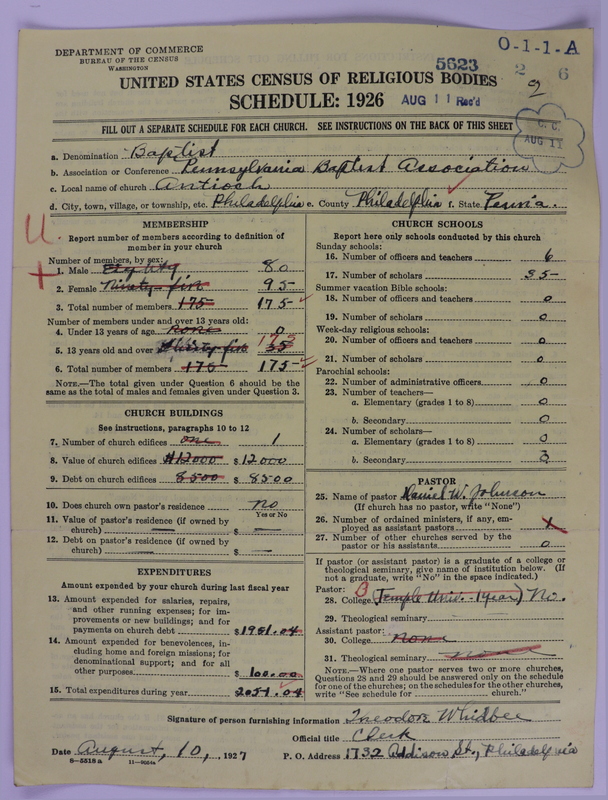 DEPARTMENT OF COMMERCE
BUREAU OF THE CENSUS
WASHINGTON
O-1-1-A
5623
2 6
9
UNITED STATES CENSUS OF RELIGIOUS BODIES
SCHEDULE: 1926
AUG 11 Rec'd
FILL OUT A SEPARATE SCHEDULE FOR EACH CHURCH. SEE INSTRUCTIONS ON THE BACK OF THIS SHEET
C. C.
AUG 11
a. Denomination Baptist
b. Association or Conference Pennsylvania Baptist Association
c. Local name of church Antioch
d. City, town, village, or township, etc. Philadelphia e. County Philadelphia f. State Penna.
MEMBERSHIP
Report number of members according to definition of
member in your church
Number of members, by sex:
1. Male Eighty 80
2. Female Ninety-five 95
3. Total number of members 175 175
Number of members under and over 13 years old:
4. Under 13 years of age none 0
5. 13 years old and over 175
6. Total number of members 175 175
NOTE.—The total given under Question 6 should be
same as the total of males and females given under Question 3.
CHURCH BUILDINGS
See instructions, paragraphs 10 to 12
7. Number of church edifices one 1
8. Value of church edifices $12000 $12000
9. Debt on church edifices 8500 $8500
10. Does church own pastor's residence no
Yes or No
11. Value of pastor's residence (if owned by
church) — $ —
12. Debt on pastor's residence (if owned by
church) — $ —
EXPENDITURES
Amount expended by your church during last fiscal year
13. Amount expended for salaries, repairs,
and other running expenses; for im-
provements or new buildings; and for
payments on church debt $1951.04
14. Amount expended for benevolences, in-
cluding home and foreign missions; for
denominational support; and for all
other purposes $100.00
15. Total expenditures during year 2051.04
CHURCH SCHOOLS
Report here only schools conducted by this church
Sunday schools:
16. Number of officers and teachers 6
17. Number of scholars 35
Summer vacation Bible schools:
18. Number of officers and teachers 0
19. Number of scholars 0
Week-day religious schools:
20. Number of officers and teachers 0
21. Number of scholars 0
Parochial schools:
22. Number of administrative officers 0
23. Number of teachers—
a. Elementary (grades 1 to 8) 0
b. Secondary 0
24. Number of scholars—
a. Elementary (grades 1 to 8) 0
b. Secondary
PASTOR
25. Name of pastor Daniel W. Johnson
(If church has no pastor, write "None")
26. Number of ordained ministers, if any, em-
ployed as assistant pastors
27. Number of other churches served by the
pastor or his assistants 0
If pastor (or assistant pastor) is a graduate of a college or
theological seminary, give name of institution below. (If
not a graduate, write "No" in the space indicated.)
Pastor:
28. College (Temple Univ. 1 year) No.
29. Theological seminary
Assistant pastor:
30. College none
31. Theological seminary none
NOTE.—Where one pastor serves two or more churches,
Questions 28 and 29 should be answered only on the schedule
for one of the churches; on the schedules for the other churches,
write "See schedule for church."
Signature of person furnishing information Theodore Whidbee
Official title Clerk
Date August, 10, 1927 P. O. Address 1732 Addison St., Philadelphia
8—5518a 11—9024a